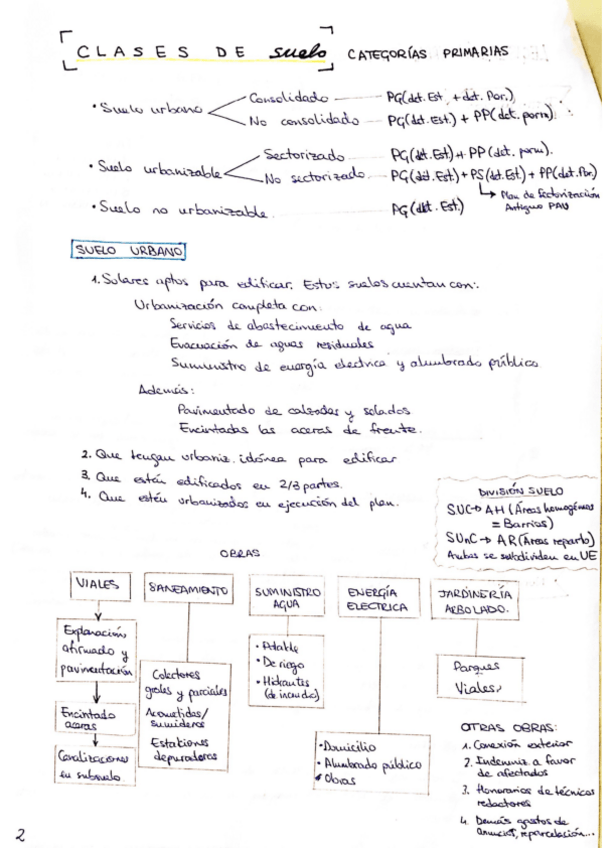 CLASES DE suelo CATEGORÍAS PRIMARIAS
• Suelo urbano
Consolidado PG (det. Est. + det. Por.)
No consolidado PG (det. Est.) + PP (det. porm)
• Suelo urbanizable
Sectorizado PG (det. Est) + PP (det. porm).
No sectorizado. PG (det. Est) + PS (det. Est) + PP (det. Por)
↳ Plan de Sectorización
Antiguo PAU
• Suelo no urbanizable. PG (det. Est.)
SUELO URBANO
1. Solares aptos para edificar. Estos suelos cuentan con:
Urbanización completa con:
Servicios de abastecimiento de agua
Evacuación de aguas residuales
Suministro de energía electrica y alumbrado público
Además:
Pavimentado de calzadas y solados
Encintadas las aceras de frente.
2. Que tengan urbaniz. idónea para edificar
3. Que estén edificados en 2/3 partes.
4. Que estén urbanizados en ejecución del plan.
DIVISIÓN SUELO
SUC → AH (Áreas homogéneas
= Barrios)
SUnC → AR (Áreas reparto)
Ambas se subdividen en UE
OBRAS
VIALES
Explanación,
afirmado y
pavimentación
Encintado
aceras
Canalizaciones
en subsuelo
SANEAMIENTO
Colectores
grales y parciales
Acometidas/
sumideros
Estaciones
depuradoras
SUMINISTRO
AGUA
• Potable
• De riego
• Hidrantes
(de incendio)
ENERGÍA
ELECTRICA
• Domicilio
• Alumbrado público
• Obras
JARDINERÍA
ARBOLADO.
Parques
Viales
OTRAS OBRAS:
1. Conexión exterior
2. Indemniz. a favor
de afectados
3. Honorarios de técnicos
redactores
4. Demás gastos de
anuncios, reparcelación...
2